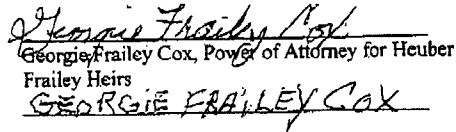 Georgie Frailey Cox
Georgie Frailey Cox, Power of Attorney for Heuber
Frailey Heirs
GEORGIE FRAILEY COX